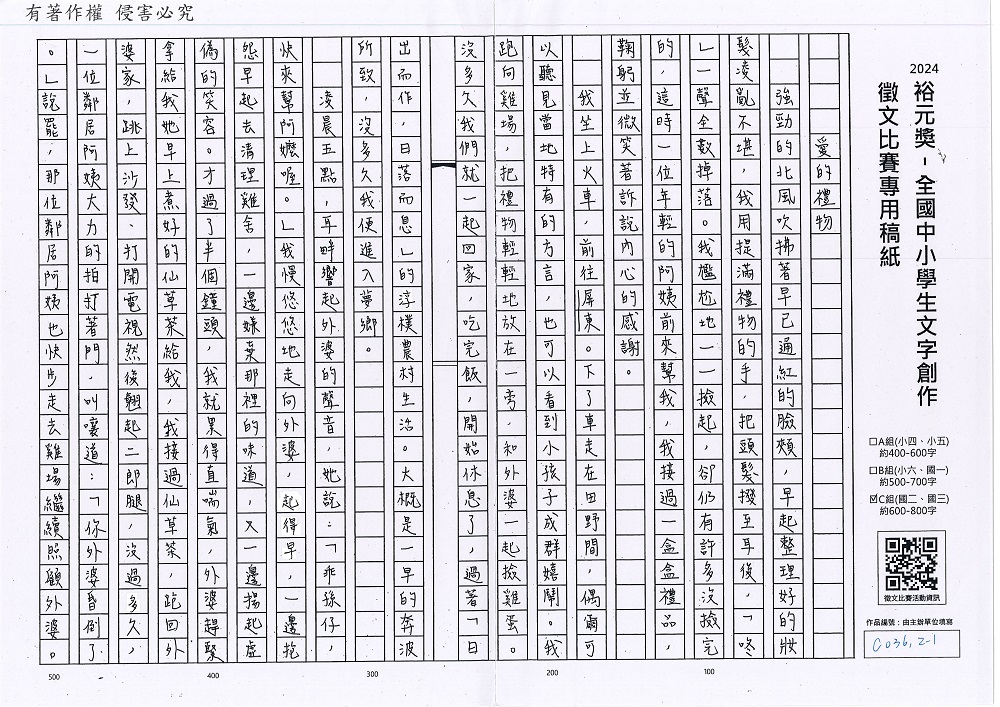 有著作權 侵害必究
2024
裕元獎-全國中小學生文字創作
徵文比賽專用稿紙
□A組(小四、小五)
約400-600字
□B組(小六、國一)
約500-700字
☑C組(國二、國三)
約600-800字
徵文比賽活動資訊
作品編號：由主辦單位填寫
C036, 2-1
愛的禮物
強勁的北風吹拂著早已通紅的臉頰，早起整理好的妝
髮凌亂不堪，我用提滿禮物的手，把頭髮撥至耳後，「咚
」一聲全數掉落。我尷尬地一一撿起，卻仍有許多沒撿完
的，這時一位年輕的阿姨前來幫我，我接過一盒盒禮品，
鞠躬並微笑著訴說內心的感謝。
我坐上火車，前往屏東。下了車走在田野間，偶爾可
以聽見當地特有的方言，也可以看到小孩子成群嬉鬧。我
跑向雞場，把禮物輕輕地放在一旁，和外婆一起撿雞蛋。
沒多久我們就一起回家，吃完飯，開始休息了，過著「日
出而作，日落而息」的淳樸農村生活。大概是一早的奔波
所致，沒多久我便進入夢鄉。
凌晨五點，耳畔響起外婆的聲音，她說：「乖孫仔，
快來幫阿嬤喔。」我慢悠悠地走向外婆，起得早，一邊抱
怨早起去清理雞舍，一邊嫌棄那裡的味道，又一邊揚起虛
偽的笑容。才過了半個鐘頭，我就累得直喘氣，外婆趕緊
拿給我她早上煮好的仙草茶給我，我接過仙草茶，跑回外
婆家，跳上沙發、打開電視然後翹起二郎腿，沒過多久，
一位鄰居阿姨大力的拍打著門，叫嚷道：「你外婆昏倒了
。」說罷，那位鄰居阿姨也快步走去雞場繼續照顧外婆。
100
200
300
400
500